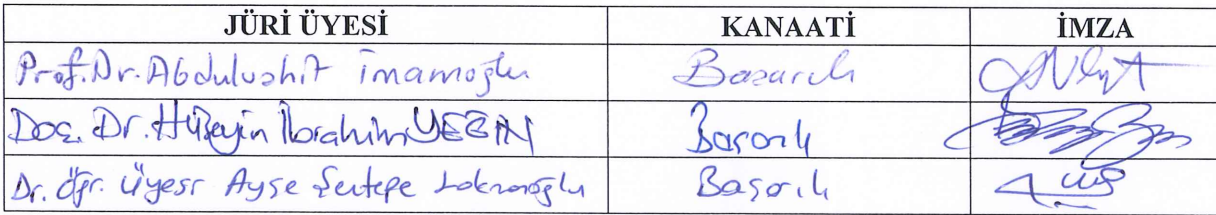 JÜRİ ÜYESİ KANAATİ İMZA
Prof. Dr. Abdulvahit İmamoğlu Başarılı
Doç. Dr. Hüseyin İbrahim YEĞİN Başarılı
Dr. Öğr. Üyesi Ayşe Şentepe Başarılı